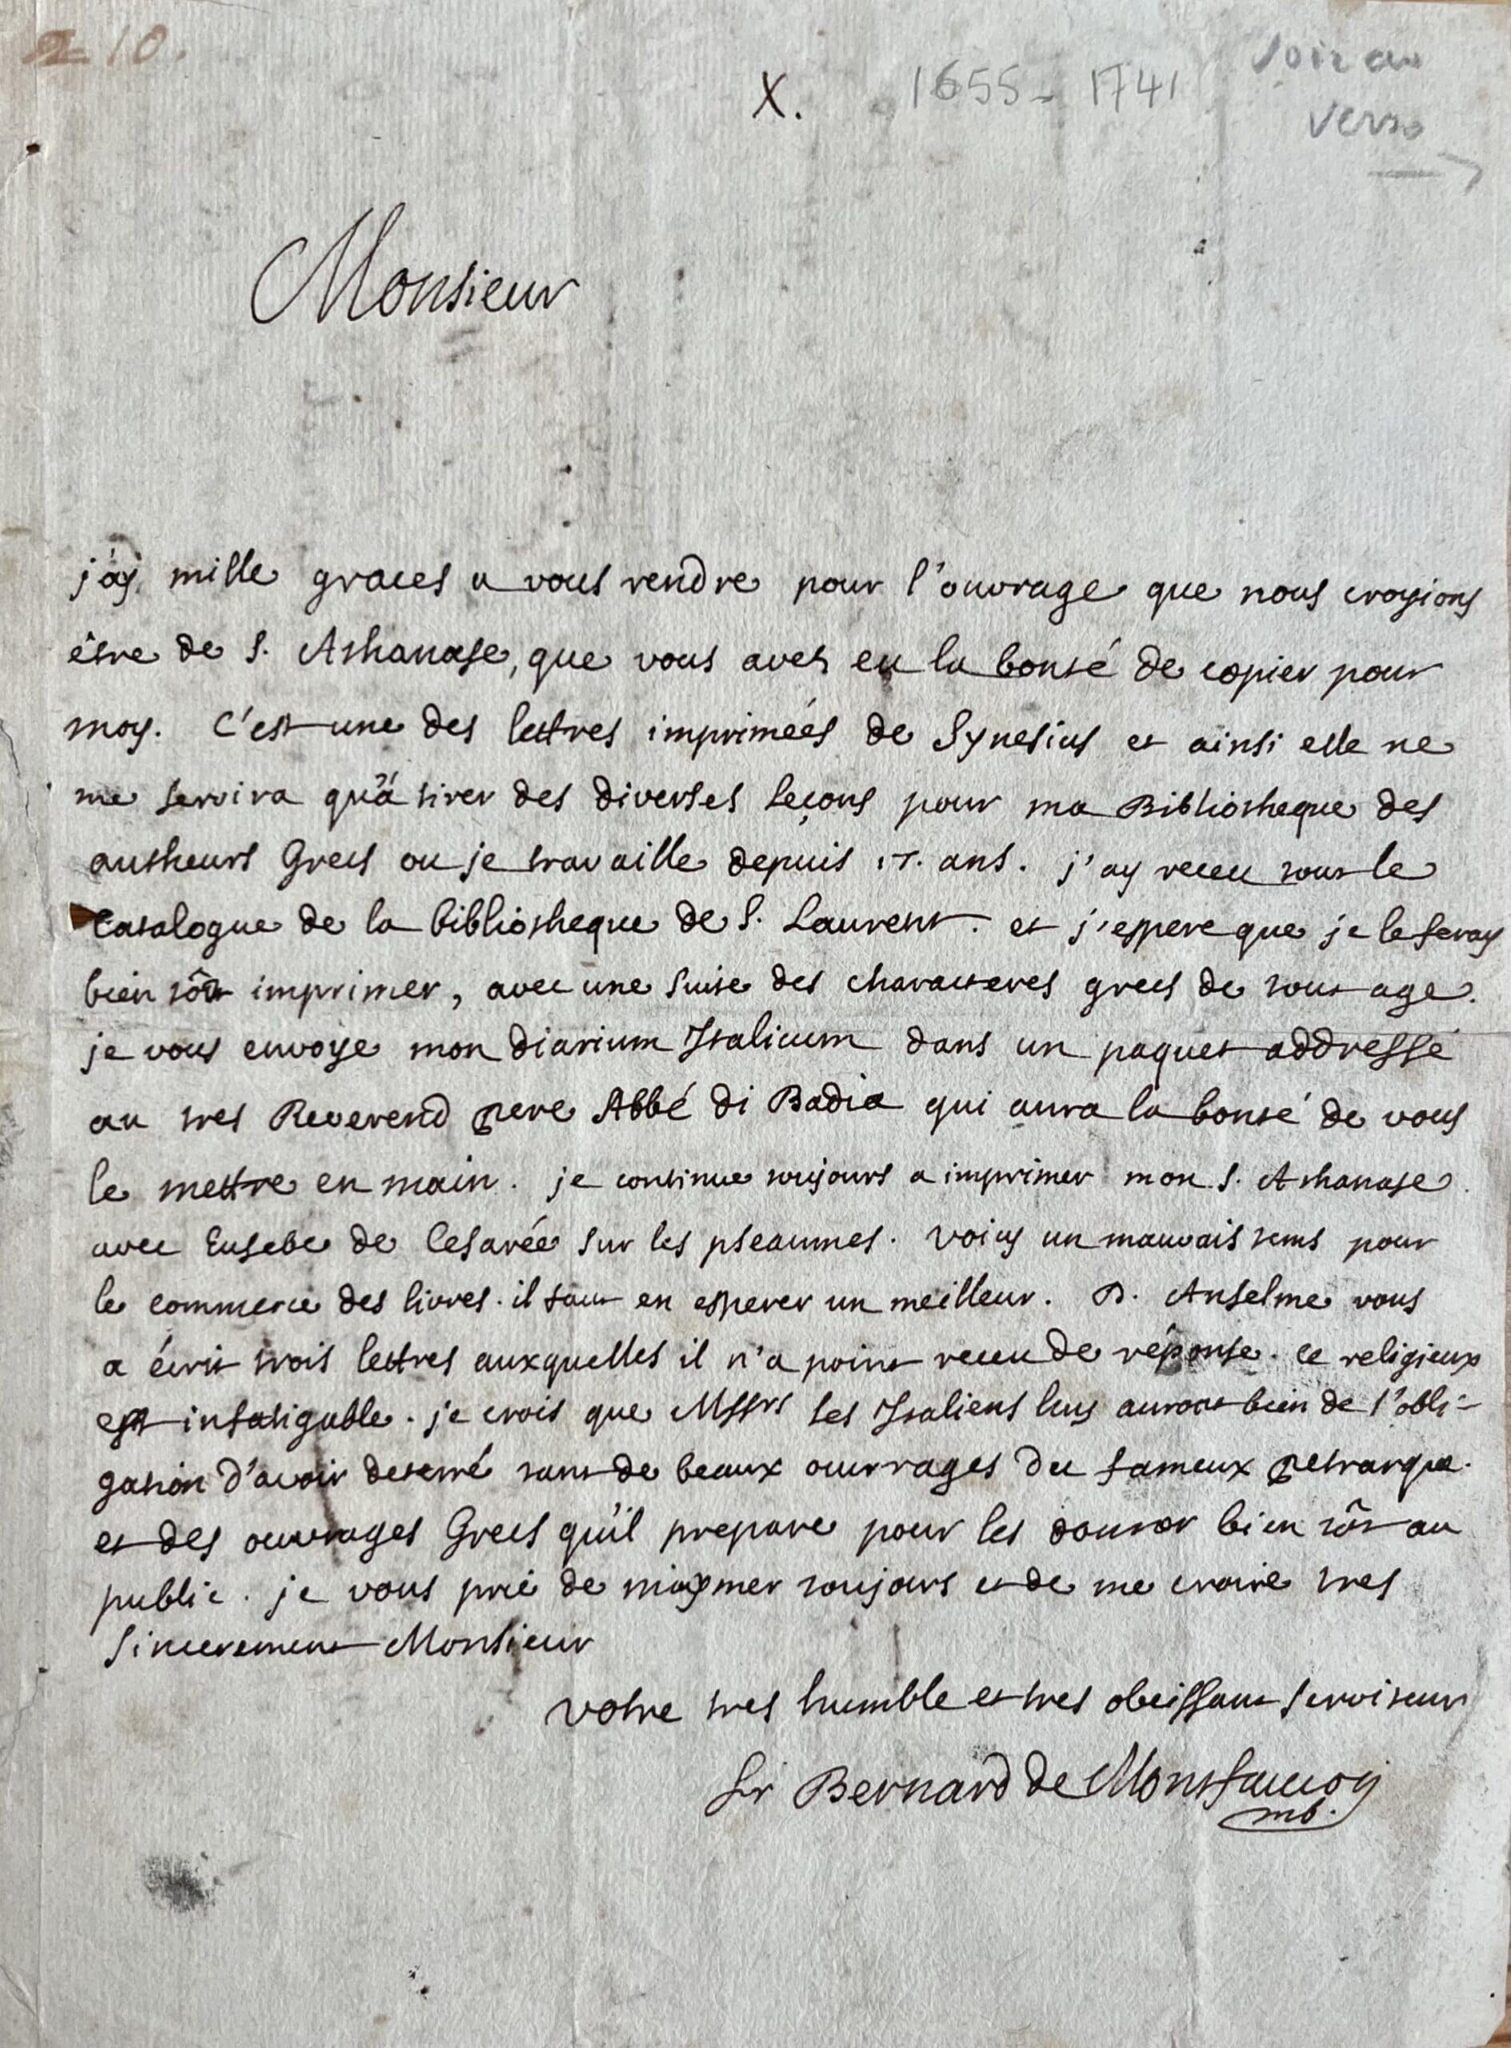 210.
X.
1655-1741
Voir au
verso
Monsieur
j'ay mille graces a vous rendre pour l'ouvrage que nous croyions
être de S. Athanase, que vous avez eu la bonté de copier pour
moy. C'est une des lettres impriméés de Synesius et ainsi elle ne
me servira qu'à tirer des diverses leçons pour ma Bibliotheque des
autheurs Grecs ou je travaille depuis ans. j'ay receu tout le
catalogue de la bibliotheque de S. Laurent. et j'espere que je le feray
bien tôt imprimer, avec une suite des characteres grecs de tout age.
je vous envoye mon diarium Italicum dans un paquet addressé
au tres Reverend pere Abbé di Badia qui aura la bonté de vous
le mettre en main. je continue toujours a imprimer mon S. Athanase
avec Eusebe de Cesarée sur les pseaumes. Voicy un mauvais tems pour
le commerce des livres. il faut en esperer un meilleur. D. Anselme vous
a écrit trois lettres auxquelles il n'a point receu de réponse. Ce religieux
est infatigable. je crois que Mssrs les Italiens luy auront bien de l'obli-
gation d'avoir deterré tant de beaux ouvrages du fameux petrarque.
et des ouvrages Grecs qu'il prepare pour les donner bien tôt au
public. je vous prie de m'aymer toujours et de me croire tres
sincerement Monsieur
votre tres humble et tres obeissant serviteur
fr Bernard de Montfaucon
mb.